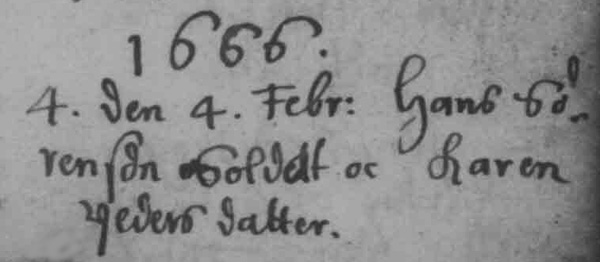 1666.
4. Den 4. Febr: Hans Sö-
rensøn Soldat oc Karen
Peders datter.